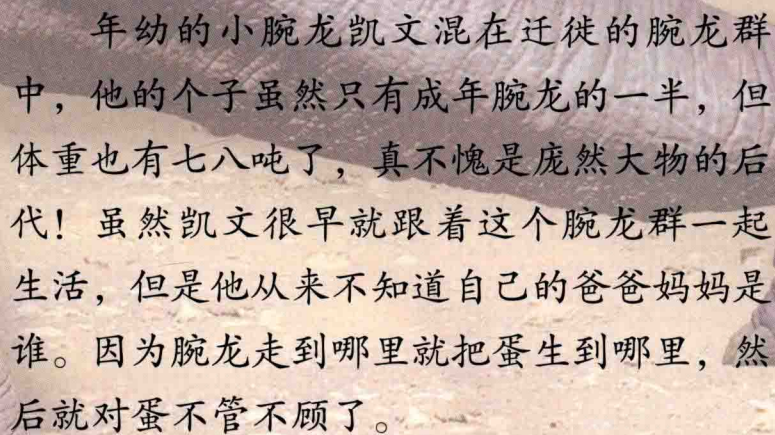 年幼的小腕龙凯文混在迁徙的腕龙群
中，他的个子虽然只有成年腕龙的一半，但
体重也有七八吨了，真不愧是庞然大物的后
代！虽然凯文很早就跟着这个腕龙群一起
生活，但是他从来不知道自己的爸爸妈妈是
谁。因为腕龙走到哪里就把蛋生到哪里，然
后就对蛋不管不顾了。